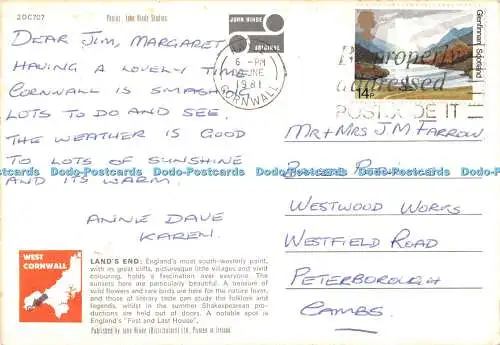 2DC707
Photos: John Hinde Studios
JOHN HINDE
ORIGINAL
Glenfinnan, Scotland
14P
6 - PM
JUNE
1981
CORNWALL
Be properly
addressed
POSTCODE IT
DEAR JIM, MARGARET,
HAVING A LOVELY TIME
CORNWALL IS SMASHING
LOTS TO DO AND SEE.
THE WEATHER IS GOOD
TO LOTS OF SUNSHINE
AND ITS WARM.
ANNE DAVE
KAREN.
MR + MRS J M FARROW
WESTWOOD WORKS
WESTFIELD ROAD
PETERBOROUGH
CAMBS.
Dodo-Postcards Dodo-Postcards Dodo-Postcards Dodo-Postcards Dodo-Postcards Dodo-Postcards
WEST
CORNWALL
LAND'S END: England's most south-westerly point,
with its great cliffs, picturesque little villages and vivid
colouring, holds a fascination over everyone. The
sunsets here are particularly beautiful. A treasure of
wild flowers and rare birds are here for the nature lover,
and those of literary taste can study the folklore and
legends, whilst in the summer Shakespearean pro-
ductions are held out of doors. A notable spot is
England's "First and Last House".
Published by John Hinde (Distributors) Ltd, Printed in Ireland